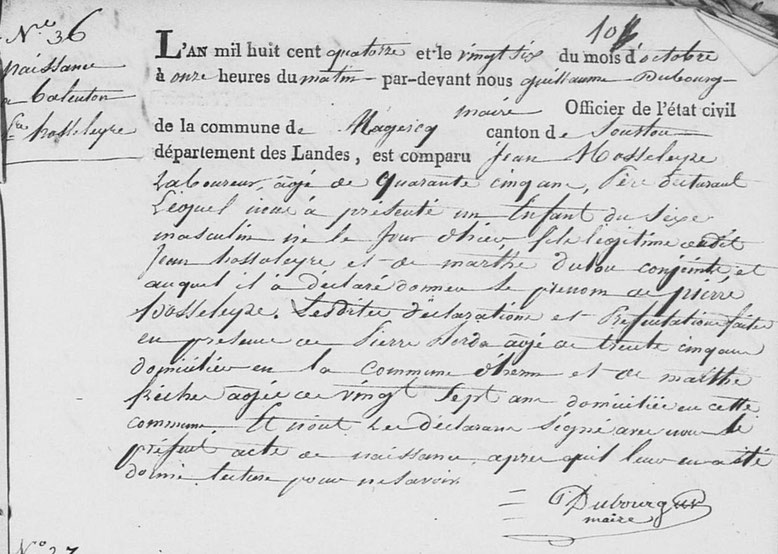 N.° 36
naissance
a Baleuton
Pre hosseleyre
108
L'AN mil huit cent quatorze et le vingt six du mois d'octobre
à onze heures du matin par-devant nous guillaume Dubourg
maire Officier de l'état civil
de la commune de Magescq canton de Soustou
département des Landes, est comparu Jean Hosseleyre
Laboureur, agé de quarante cinq ans, Père
Lequel nous à présenté un Enfant du Sexe
masculin né le Jour d'hier fils légitime dudit
Jean hosseleyre et de marthe Dulou conjoints, et
auquel il à déclaré donner le prénom de pierre
hosseleyre. Lesdites déclarations et Présentation faites
en présence de Pierre agé de trente cinq ans
domicilié en la commune d'herm et de marthe
agée de vingt sept ans domiciliée en cette
commune. Et n'ont Les déclarans Signé avec nous le
présent acte de naissance apres qu'il leur en a été
donné lecture pour ne savoir
G Dubourg
maire
N° 37